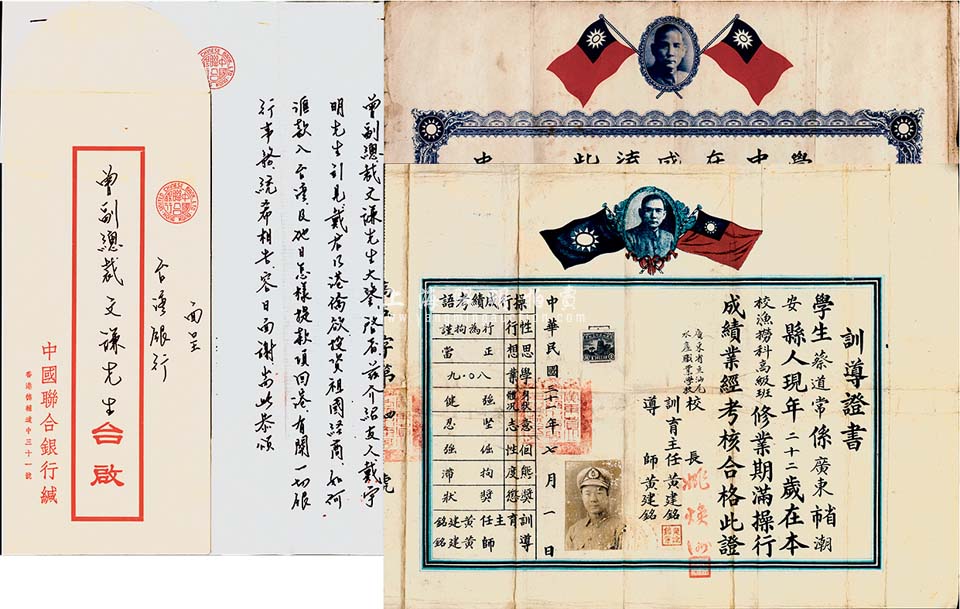 面呈
台灣銀行
曾副總裁文謙先生台啟
中國聯合銀行緘
香港德輔道中三十一號
曾副總裁文謙先生大鑒啓者茲介紹友人戴宇
明先生到見戴君乃港僑欲投資祖國經商如何
滙款入台灣及他日怎樣提款項回港有關一切銀
行事務統希相告容日面謝耑此恭頌
學 中 在 感 流 此 中
訓導證書
學生蔡道常係廣東省市潮
安縣人現年二十二歲在本
校漁撈科高級班修業期滿操行
成績業經考核合格此證
廣東省立汕尾
水產職業學校
校長姚煥洲
訓育主任黃建銘
導師黃建銘
中華民國三十一年七月一日
操行成績考語
性行 行為拘謹
思想 正當
學業 八〇.九
身體狀況 強健
意志 堅忍
個性 倔強
態度 拘滯
獎懲 獎狀
訓育主任 黃建銘
導師 黃建銘